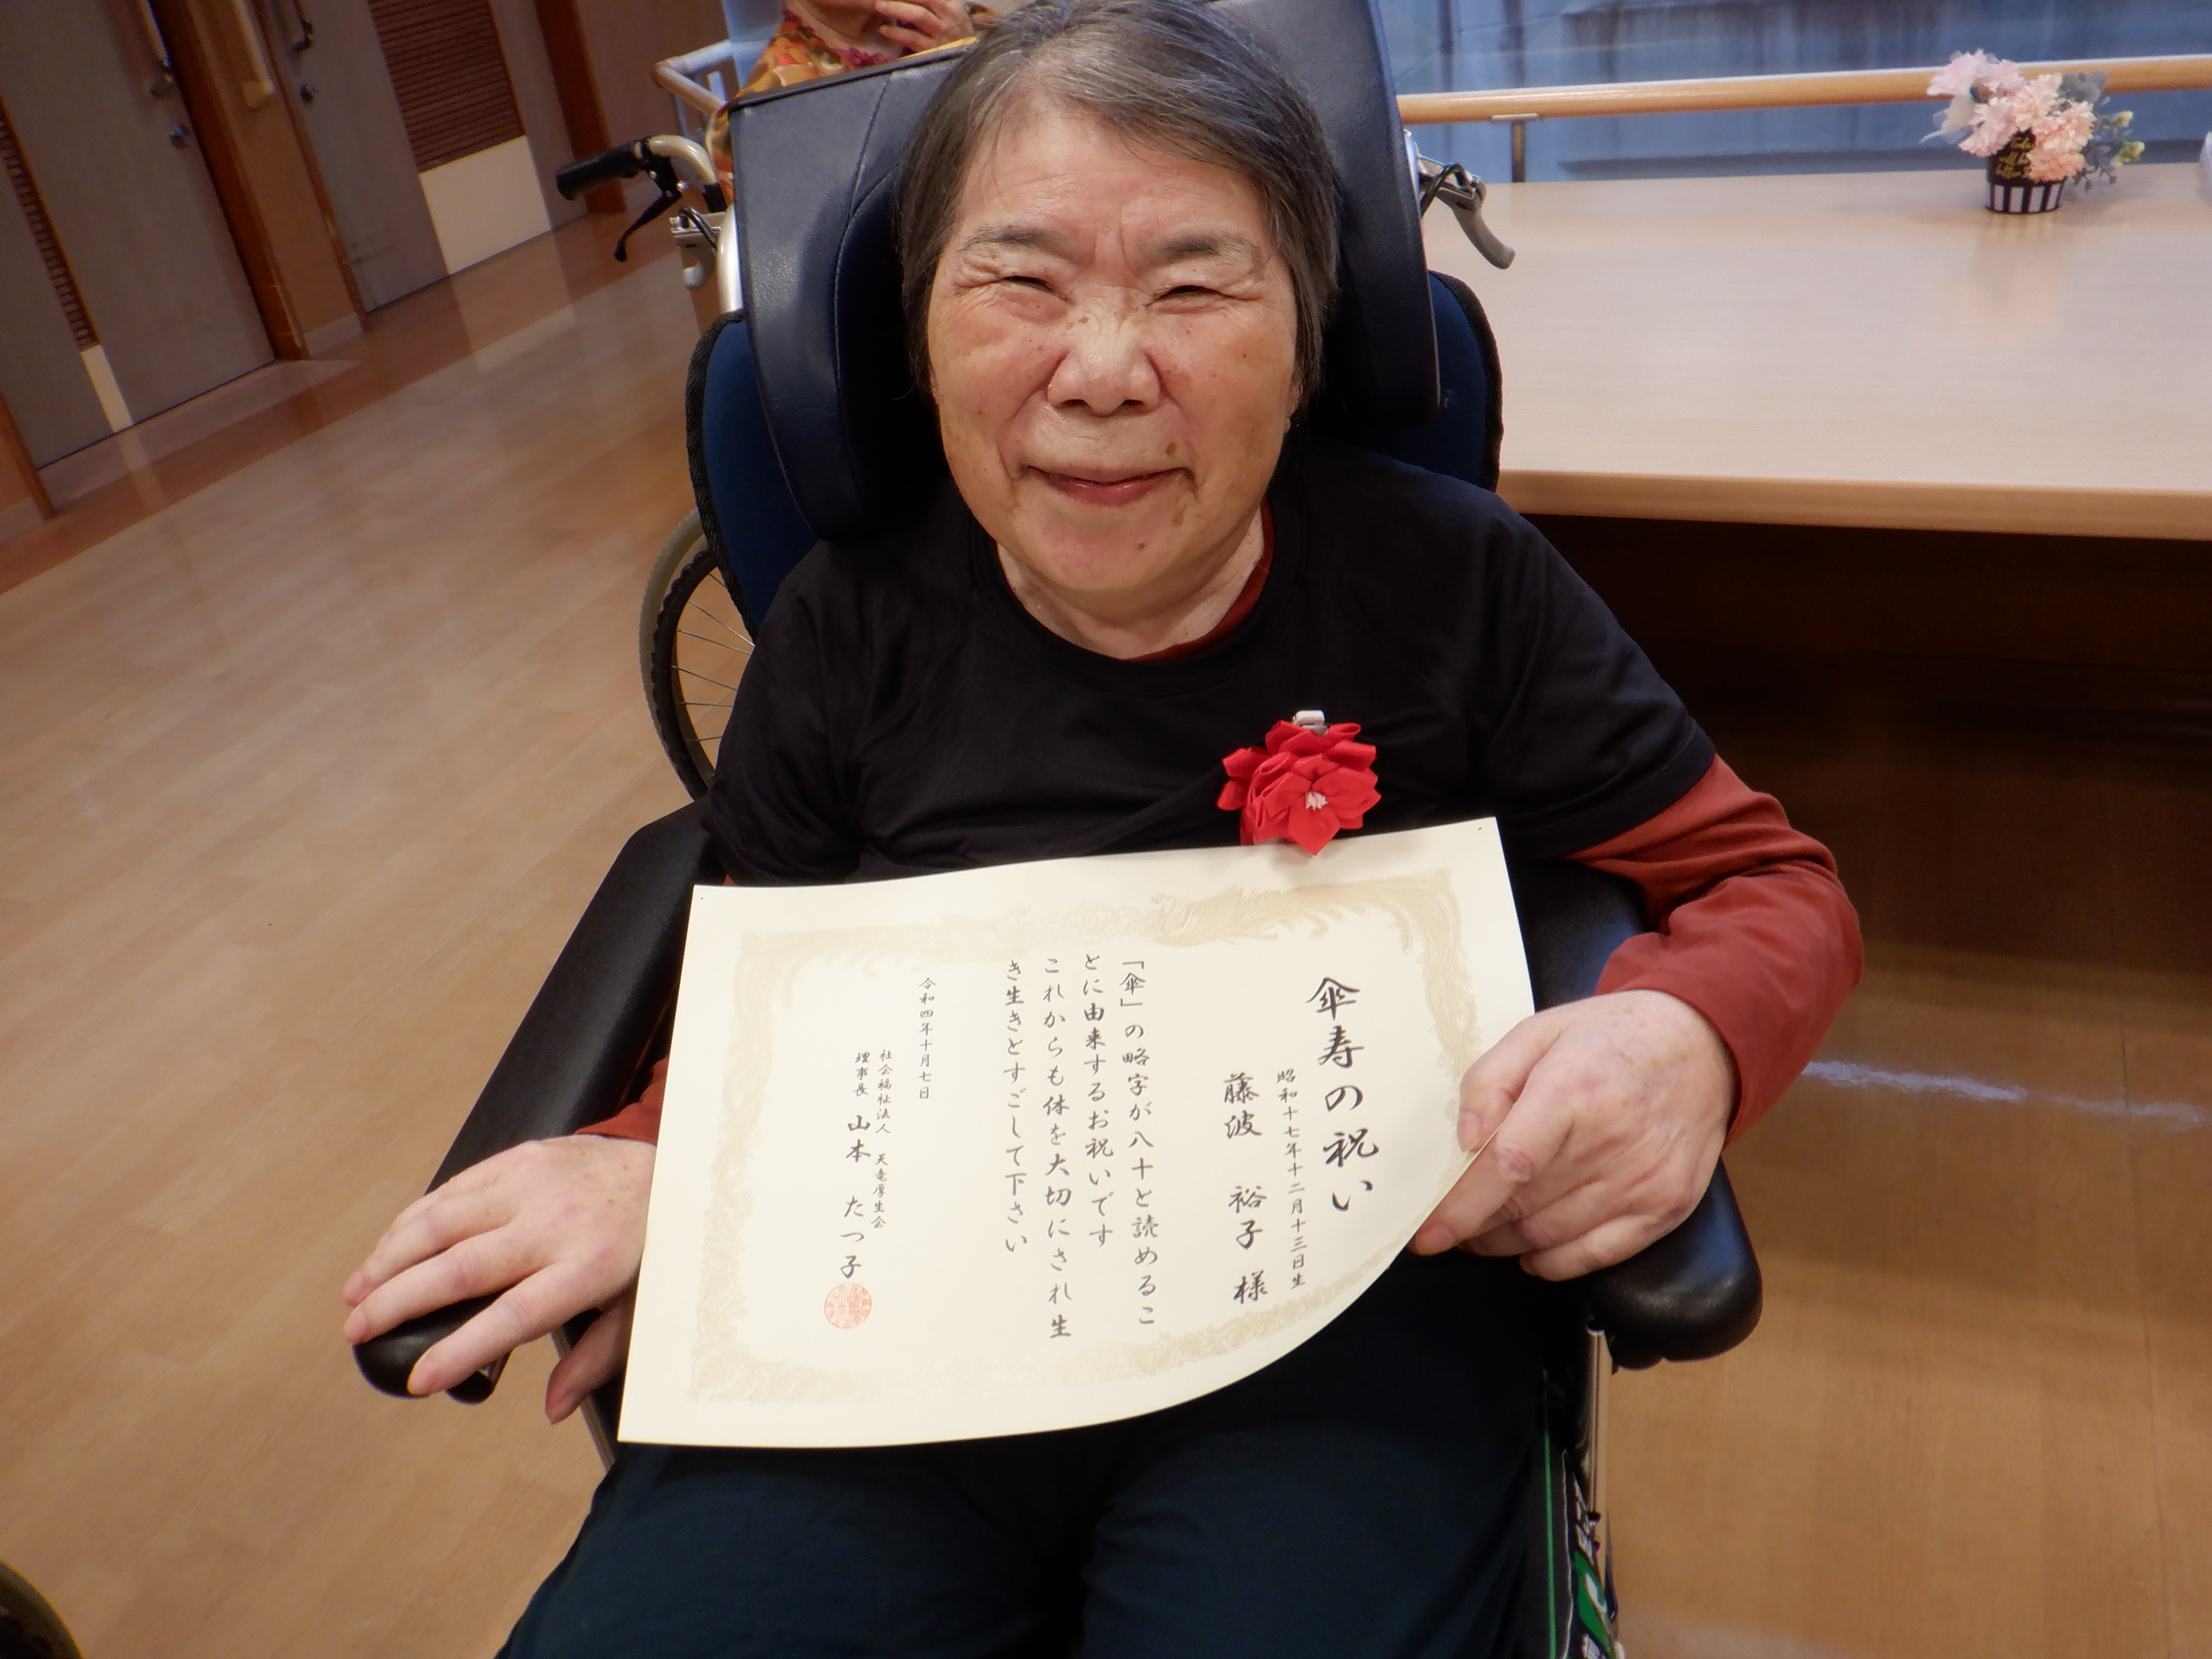 傘寿の祝い
昭和十七年十二月十三日生
藤波 裕子 様
「傘」の略字が八十と読めるこ
とに由来するお祝いです
これからも体を大切にされ生
き生きとすごして下さい
令和四年十月七日
社会福祉法人 天竜厚生会
理事長 山本 たつ子